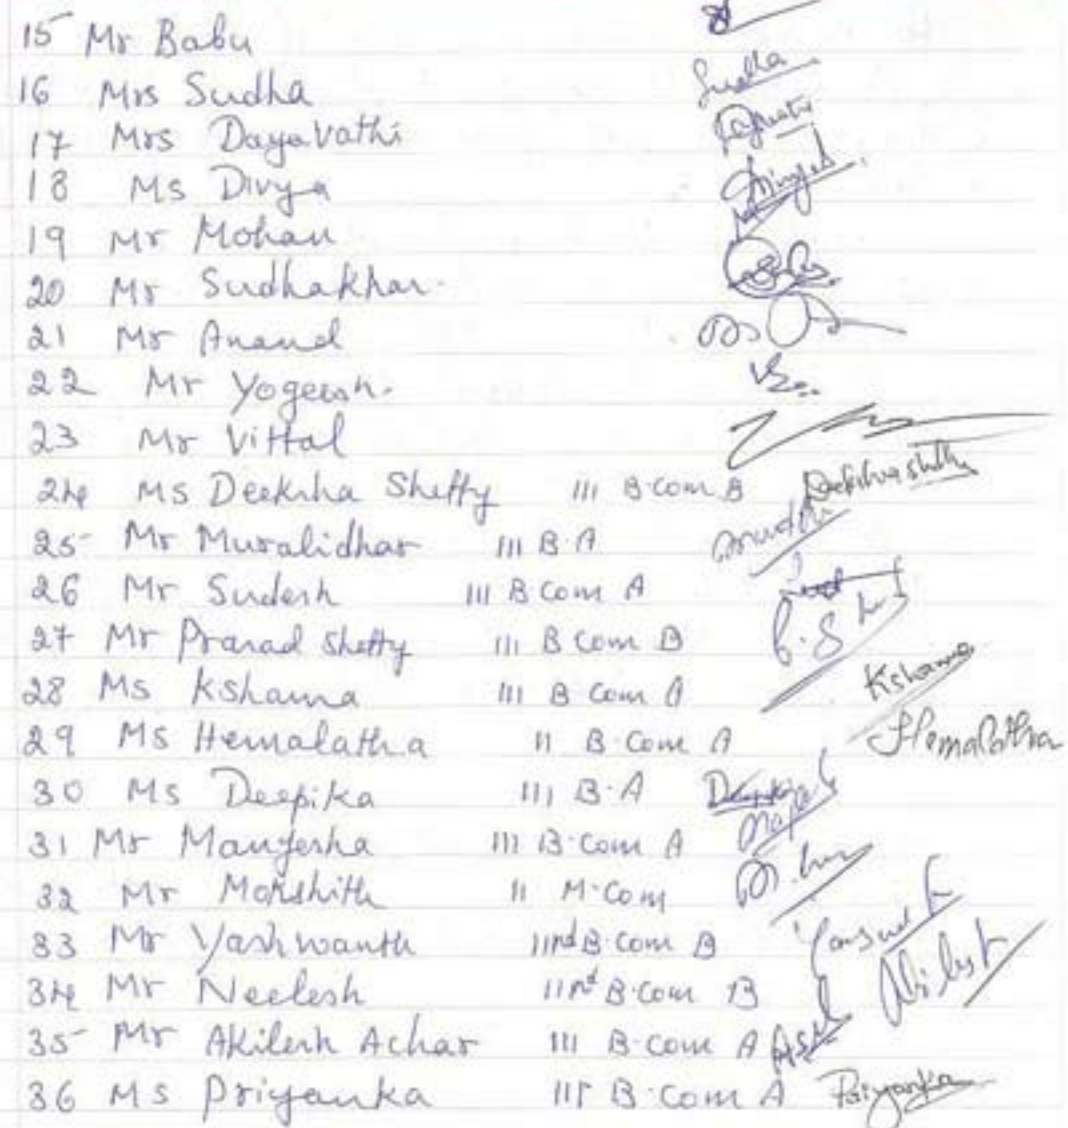 15 Mr Babu
16 Mrs Sudha Sudha
17 Mrs Dayavathi
18 Ms Divya
19 Mr Mohan
20 Mr Sudhakhar.
21 Mr Anand
22 Mr Yogeesh.
23 Mr Vittal
24 Ms Deeksha Shetty III B.Com B Deekshashetty
25 Mr Muralidhar III B A
26 Mr Sudesh III B Com A
27 Mr Prasad Shetty III B Com B
28 Ms Kshama III B Com A Kshama
29 Ms Hemalatha II B.Com A Hemalatha
30 Ms Deepika III B.A
31 Mr Manjesha III B.Com A
32 Mr Mokshith II M.Com
33 Mr Yashwanth IInd B.Com B
34 Mr Neelesh IInd B.Com B
35 Mr Akilesh Achar III B.Com A
36 Ms Priyanka III B.Com A Priyanka